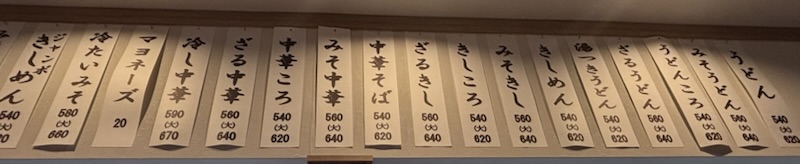 うどん
540
(大)
620
みそうどん
560
(大)
640
うどんころ
540
(大)
620
ざるうどん
560
(大)
640
湯つきうどん
540
(大)
620
きしめん
540
(大)
620
みそきし
560
(大)
640
きしころ
540
(大)
620
ざるきし
560
(大)
640
中華そば
540
(大)
620
みそ中華
560
(大)
640
中華ころ
540
(大)
620
ざる中華
560
(大)
640
冷し中華
590
(大)
670
マヨネーズ
20
冷たいみそ
580
(大)
660
ジャンボ
きしめん
540
(大)
620